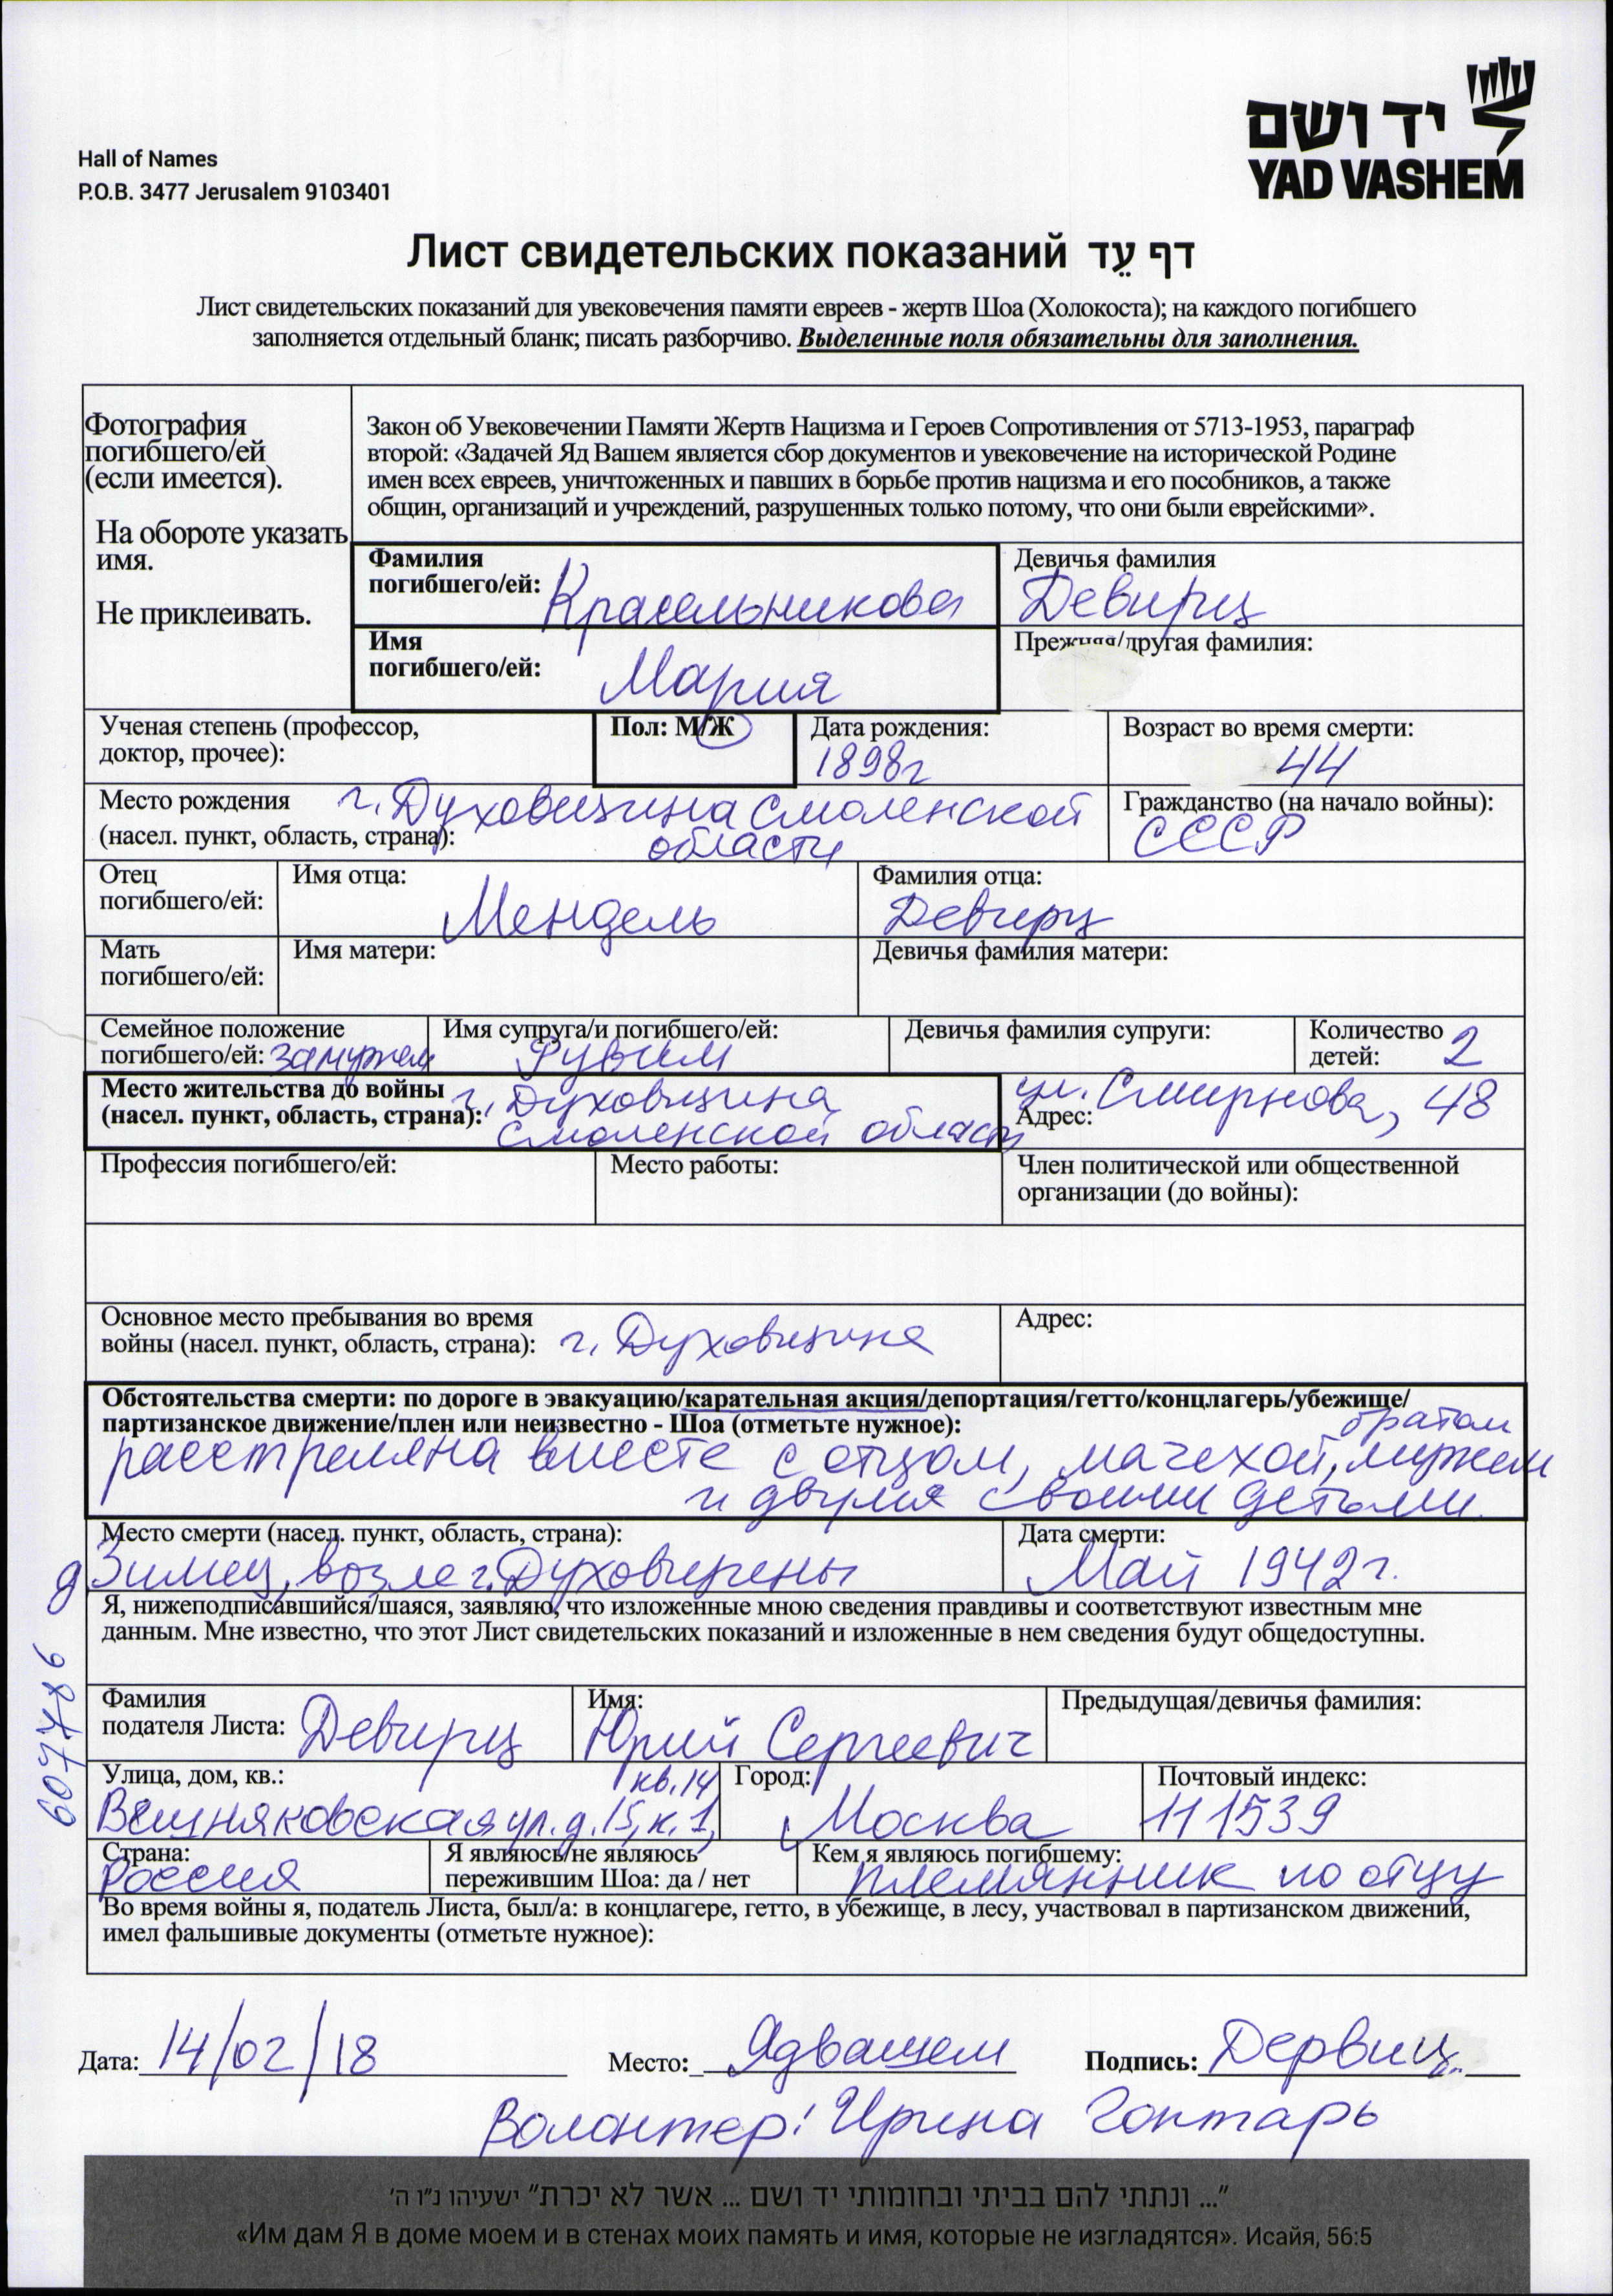 יד ושם
YAD VASHEM
Hall of Names
P.O.B. 3477 Jerusalem 9103401
Лист свидетельских показаний דף עֵד
Лист свидетельских показаний для увековечения памяти евреев - жертв Шоа (Холокоста); на каждого погибшего
заполняется отдельный бланк; писать разборчиво. Выделенные поля обязательны для заполнения.
Фотография
погибшего/ей
(если имеется).
На обороте указать
имя.
Не приклеивать.
Закон об Увековечении Памяти Жертв Нацизма и Героев Сопротивления от 5713-1953, параграф
второй: «Задачей Яд Вашем является сбор документов и увековечение на исторической Родине
имен всех евреев, уничтоженных и павших в борьбе против нацизма и его пособников, а также
общин, организаций и учреждений, разрушенных только потому, что они были еврейскими».
Фамилия
погибшего/ей: Красельникова
Девичья фамилия
Девирц
Имя
погибшего/ей: Мария
Прежняя/другая фамилия:
Ученая степень (профессор,
доктор, прочее):
Пол: М/Ж
Дата рождения:
1898г
Возраст во время смерти:
44
Место рождения г. Духовщина Смоленской
(насел. пункт, область, страна): области
Гражданство (на начало войны):
СССР
Отец
погибшего/ей:
Имя отца:
Мендель
Фамилия отца:
Девирц
Мать
погибшего/ей:
Имя матери:
Девичья фамилия матери:
Семейное положение
погибшего/ей: замужем
Имя супруга/и погибшего/ей:
Рувим
Девичья фамилия супруги:
Количество
детей: 2
Место жительства до войны г. Духовщина
(насел. пункт, область, страна): Смоленской области
ул. Смирнова, 48
Адрес:
Профессия погибшего/ей:
Место работы:
Член политической или общественной
организации (до войны):
Основное место пребывания во время
войны (насел. пункт, область, страна): г. Духовщина
Адрес:
Обстоятельства смерти: по дороге в эвакуацию/карательная акция/депортация/гетто/концлагерь/убежище/
партизанское движение/плен или неизвестно - Шоа (отметьте нужное):
братом
расстреляна вместе с отцом, мачехой, мужем
и двумя своими детьми.
Место смерти (насел. пункт, область, страна):
д. Зимец, возле г. Духовщины
Дата смерти:
Май 1942г.
Я, нижеподписавшийся/шаяся, заявляю, что изложенные мною сведения правдивы и соответствуют известным мне
данным. Мне известно, что этот Лист свидетельских показаний и изложенные в нем сведения будут общедоступны.
607786
Фамилия
подателя Листа: Девирц
Имя:
Юрий Сергеевич
Предыдущая/девичья фамилия:
Улица, дом, кв.: кв. 14
Вешняковская ул. д. 15, к. 1,
Город:
Москва
Почтовый индекс:
111539
Страна:
Россия
Я являюсь/не являюсь
пережившим Шоа: да / нет
Кем я являюсь погибшему:
племянник по отцу
Во время войны я, податель Листа, был/а: в концлагере, гетто, в убежище, в лесу, участвовал в партизанском движении,
имел фальшивые документы (отметьте нужное):
Дата: 14/02/18
Место: Ядвашем
Подпись: Дервиц
Волонтер: Ирина Гонтарь
"... ונתתי להם בביתי ובחומותי יד ושם ... אשר לא יכרת" ישעיהו נ"ו ה'
«Им дам Я в доме моем и в стенах моих память и имя, которые не изгладятся». Исайя, 56:5